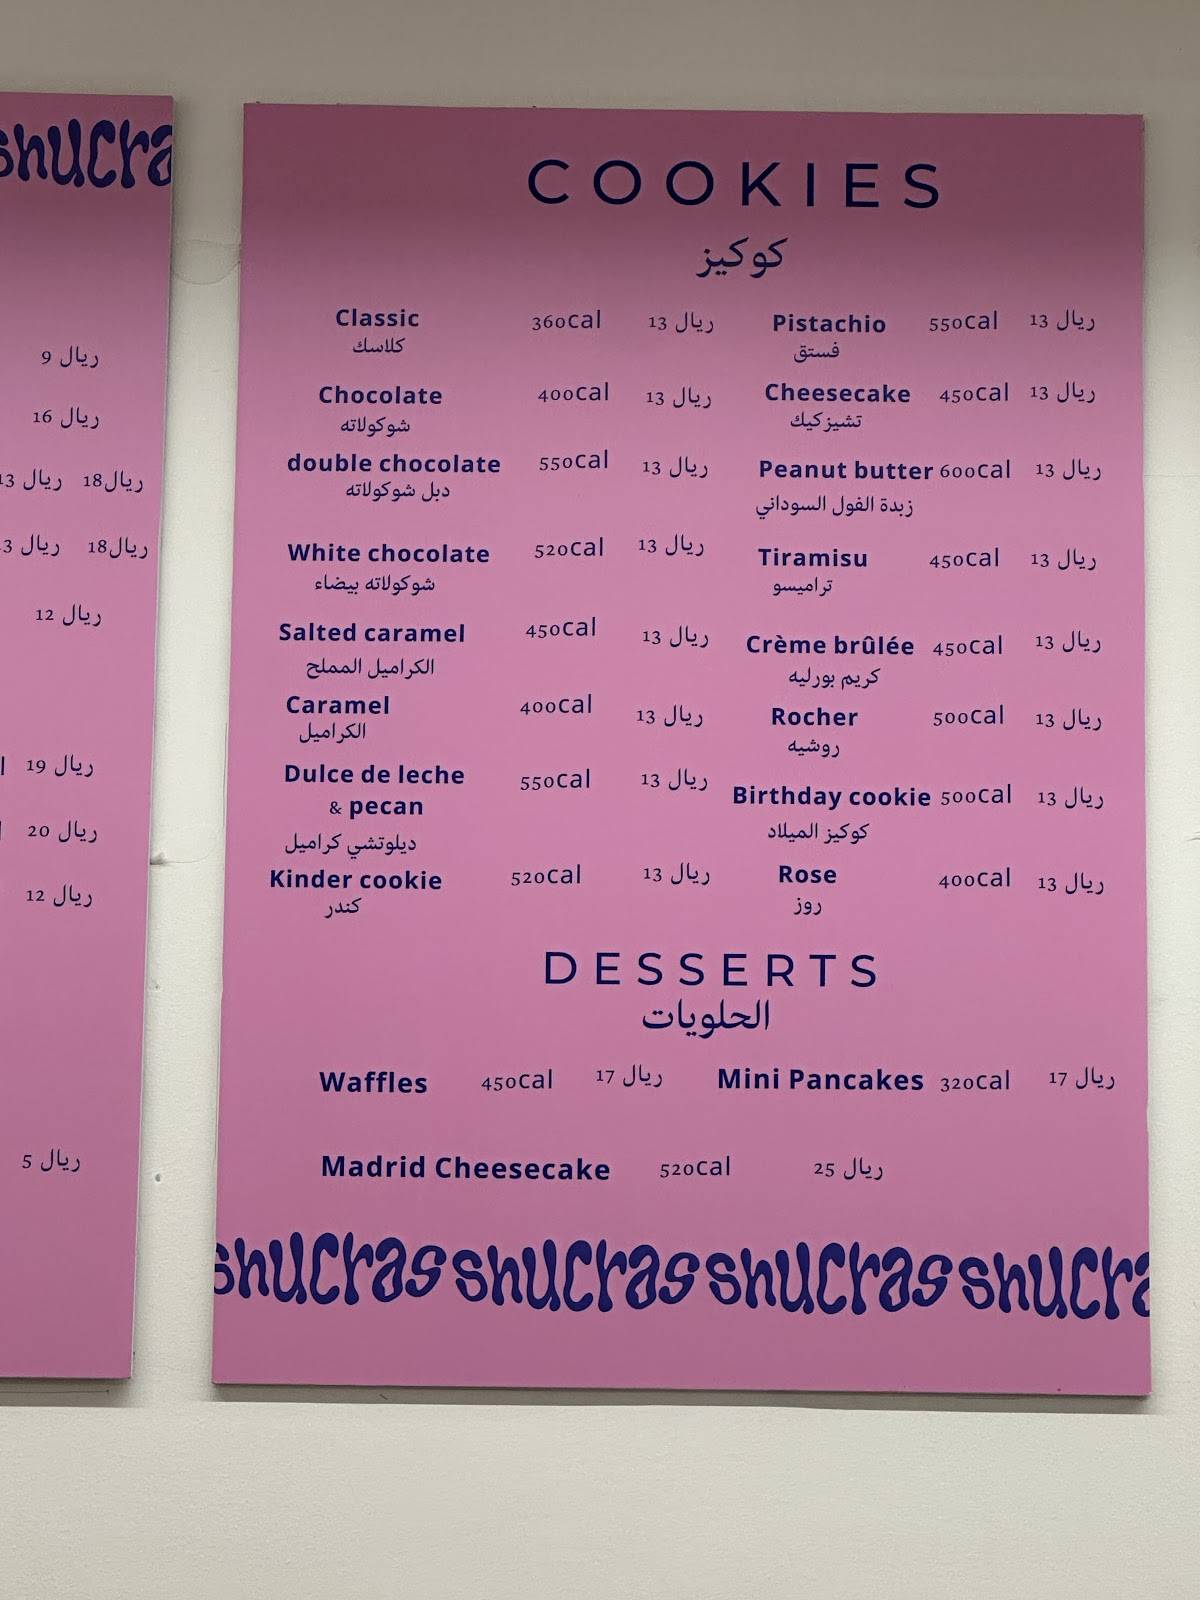 shucra
9 ريال
16 ريال
13 ريال 18ريال
3 ريال 18ريال
12 ريال
19 ريال
20 ريال
12 ريال
5 ريال
COOKIES
كوكيز
Classic 360cal 13 ريال
كلاسك
Chocolate 400cal 13 ريال
شوكولاته
double chocolate 550cal 13 ريال
دبل شوكولاته
White chocolate 520cal 13 ريال
شوكولاته بيضاء
Salted caramel 450cal 13 ريال
الكراميل المملح
Caramel 400cal 13 ريال
الكراميل
Dulce de leche 550cal 13 ريال
& pecan
ديلوتشي كراميل
Kinder cookie 520cal 13 ريال
كندر
Pistachio 550cal 13 ريال
فستق
Cheesecake 450cal 13 ريال
تشيزكيك
Peanut butter 600cal 13 ريال
زبدة الفول السوداني
Tiramisu 450cal 13 ريال
تراميسو
Crème brûlée 450cal 13 ريال
كريم بورليه
Rocher 500cal 13 ريال
روشيه
Birthday cookie 500cal 13 ريال
كوكيز الميلاد
Rose 400cal 13 ريال
روز
DESSERTS
الحلويات
Waffles 450cal 17 ريال Mini Pancakes 320cal 17 ريال
Madrid Cheesecake 520cal 25 ريال
shucras shucras shucras shucra